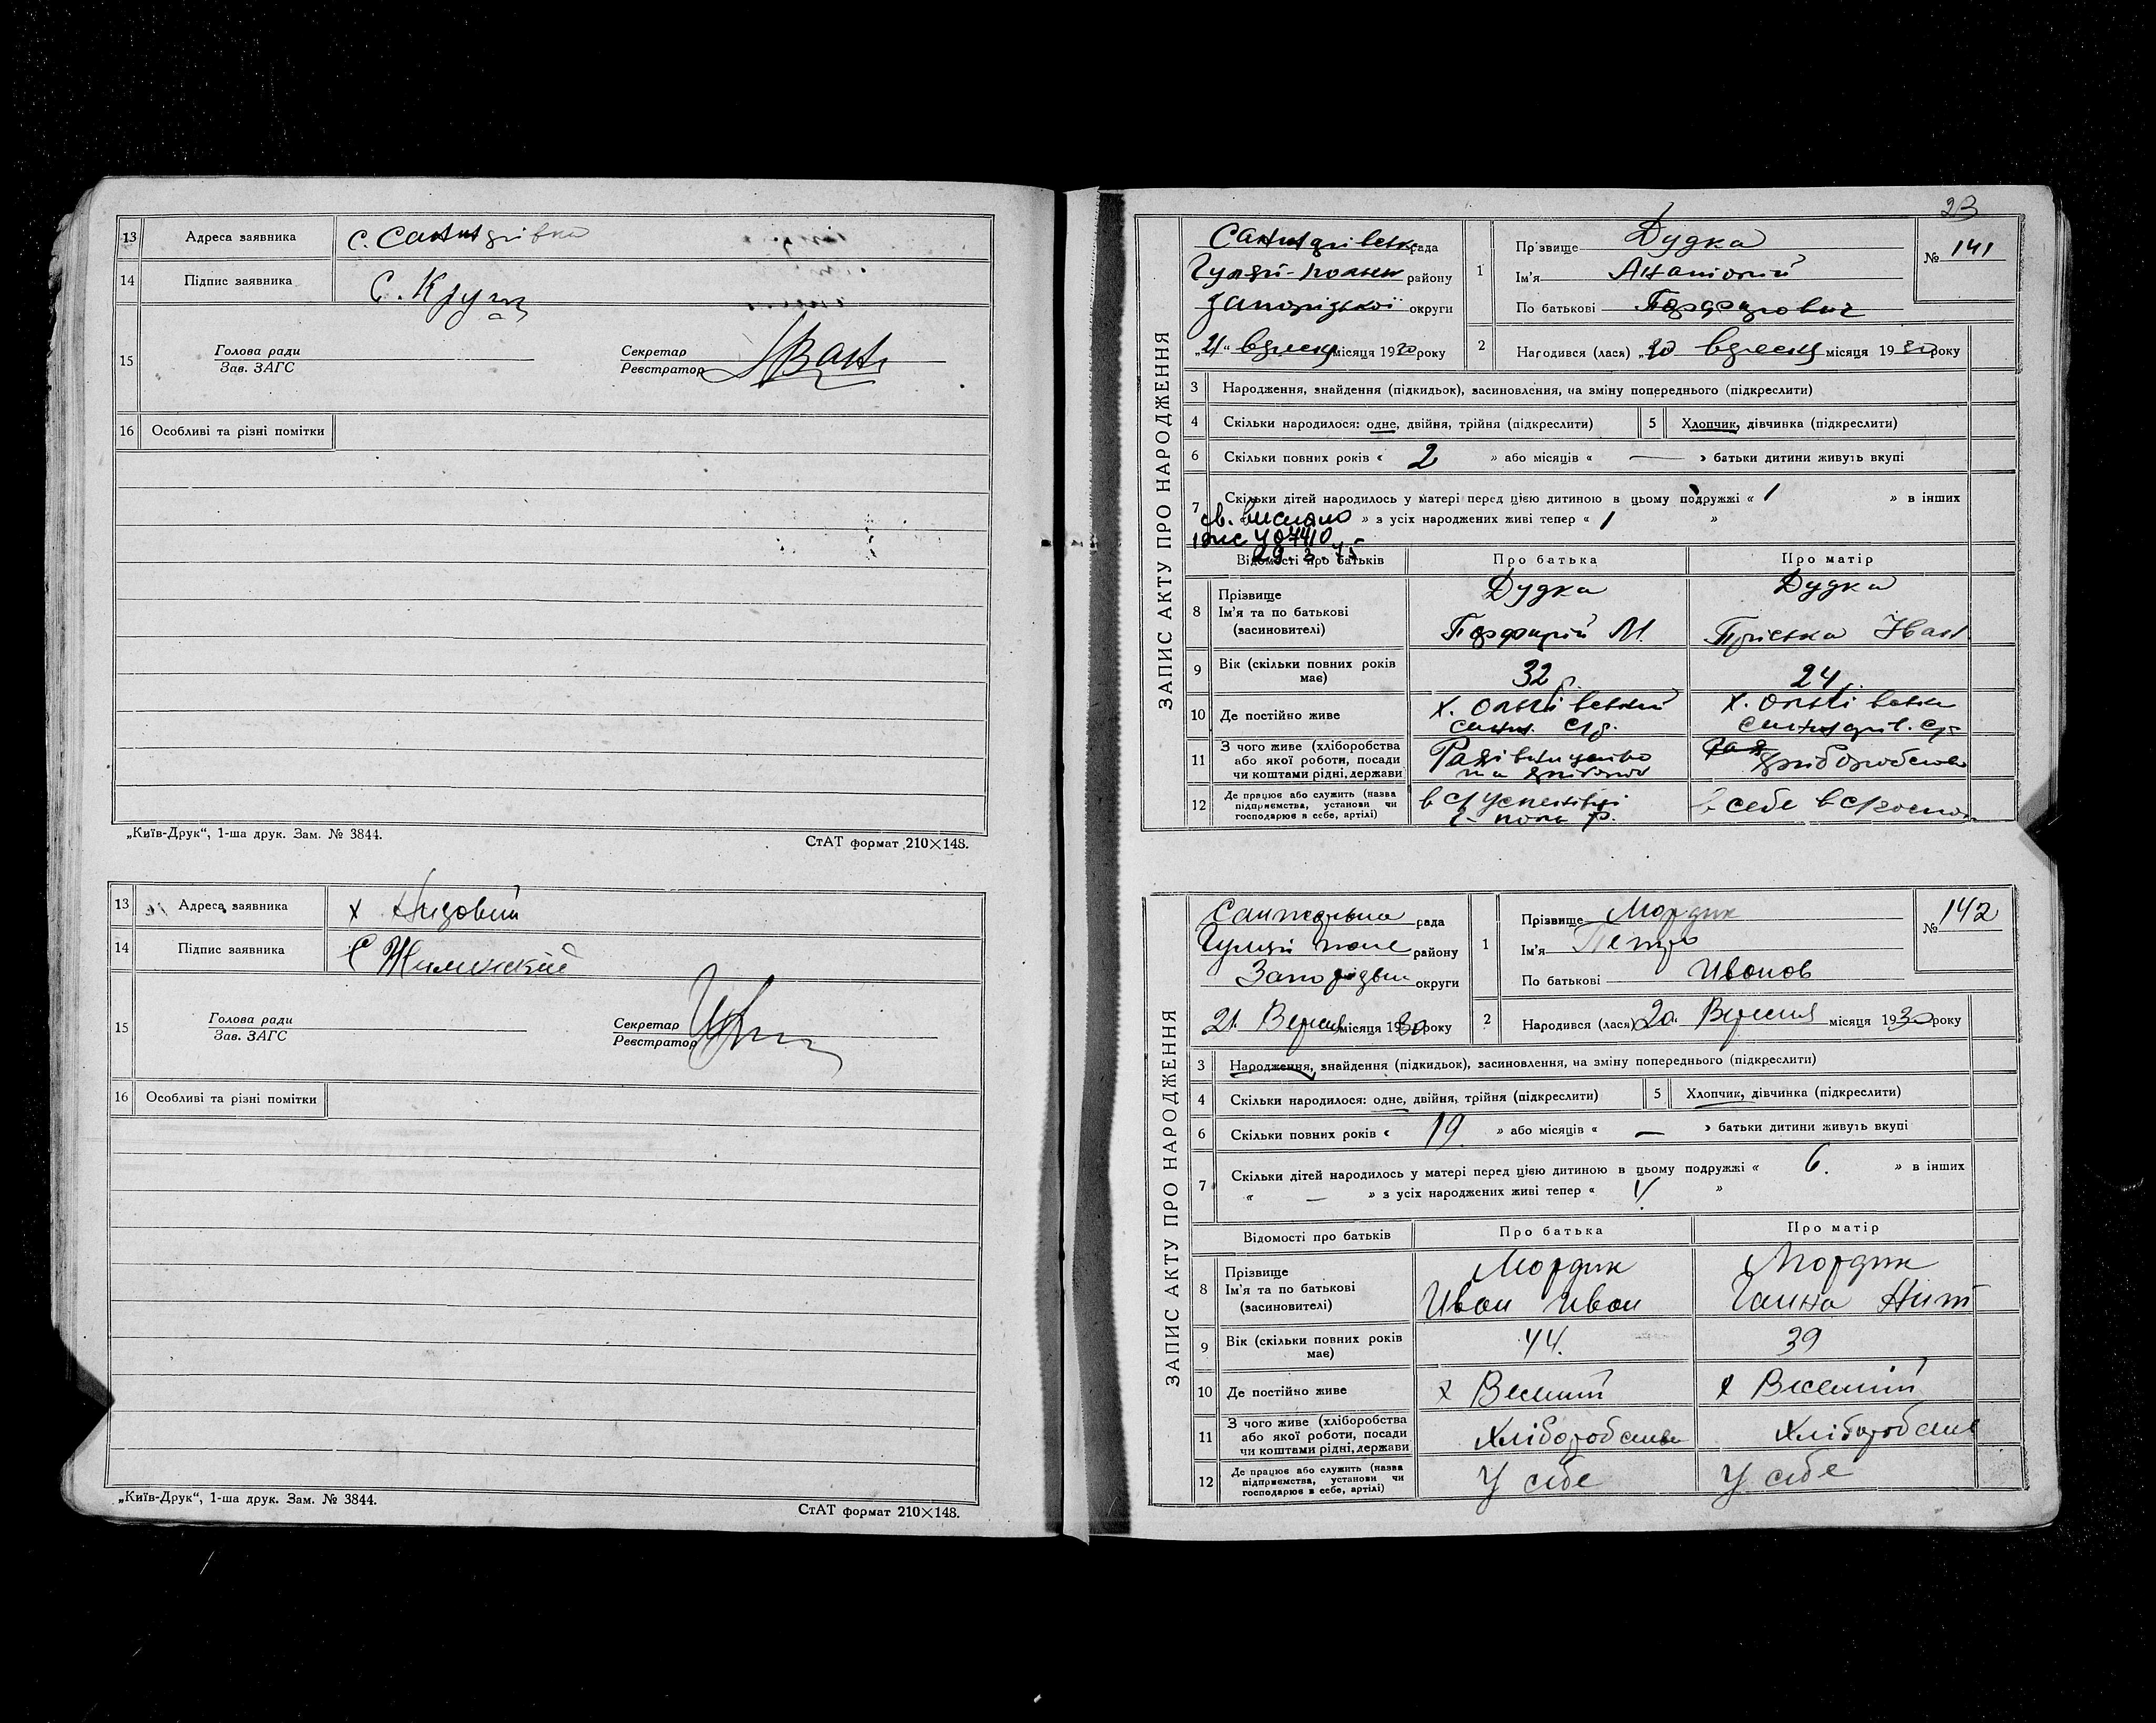 13 Адреса заявника с. Санжарівка
14 Підпис заявника С. Круш
15 Голова ради
Зав. ЗАГС
Секретар
Реєстратор
16 Особливі та різні помітки
„Київ-Друк“, 1-ша друк. Зам. № 3844.
СтАТ формат 210×148.
13 Адреса заявника х Низовий
14 Підпис заявника
15 Голова ради
Зав. ЗАГС
Секретар
Реєстратор
16 Особливі та різні помітки
„Київ-Друк“, 1-ша друк. Зам. № 3844.
СтАТ формат 210×148.
23
ЗАПИС АКТУ ПРО НАРОДЖЕННЯ
рада
Гуляй- району
Запорізької округи
„21“ вересня місяця 1930 року
1 Прізвище Дудка
Ім'я Анатолій
По батькові Порфирович
№ 141
2 Народився (лася) „20 вересня місяця 1930 року
3 Народження, знайдення (підкидьок), засиновлення, на зміну попереднього (підкреслити)
4 Скільки народилося: одне, двійня, трійня (підкреслити)
5 Хлопчик, дівчинка (підкреслити)
6 Скільки повних років « 2 » або місяців « — » батьки дитини живуть вкупі
7 Скільки дітей народилось у матері перед цією дитиною в цьому подружжі « 1 » в інших
» з усіх народжених живі тепер « 1 »
св. вислано
Відомості про батьків Про батька Про матір
8 Прізвище
Ім'я та по батькові
(засиновителі)
Дудка
Порфирій М.
Дудка
Пріська Іван
9 Вік (скільки повних років має) 32 24
10 Де постійно живе
11 З чого живе (хліборобства або якої роботи, посади чи коштами рідні, держави
12 Де працює або служить (назва підприємства, установи чи господарює в себе, артілі)
в себе в
ЗАПИС АКТУ ПРО НАРОДЖЕННЯ
рада
Гуляй поле району
округи
21. Вересня місяця 1930 року
1 Прізвище Мордик
Ім'я Петро
По батькові Иванов
№ 142
2 Народився (лася) 20“ Вересня місяця 1930 року
3 Народження, знайдення (підкидьок), засиновлення, на зміну попереднього (підкреслити)
4 Скільки народилося: одне, двійня, трійня (підкреслити)
5 Хлопчик, дівчинка (підкреслити)
6 Скільки повних років « 19. » або місяців « — » батьки дитини живуть вкупі
7 Скільки дітей народилось у матері перед цією дитиною в цьому подружжі « 6. » в інших
« — » з усіх народжених живі тепер « »
Відомості про батьків Про батька Про матір
8 Прізвище
Ім'я та по батькові
(засиновителі)
Мордик
Иван Иван
Мордик
Ганна
9 Вік (скільки повних років має) 44. 39
10 Де постійно живе х Веселий х Веселий
11 З чого живе (хліборобства або якої роботи, посади чи коштами рідні, держави
Хліборобство Хліборобств
12 Де працює або служить (назва підприємства, установи чи господарює в себе, артілі)
У себе У себе